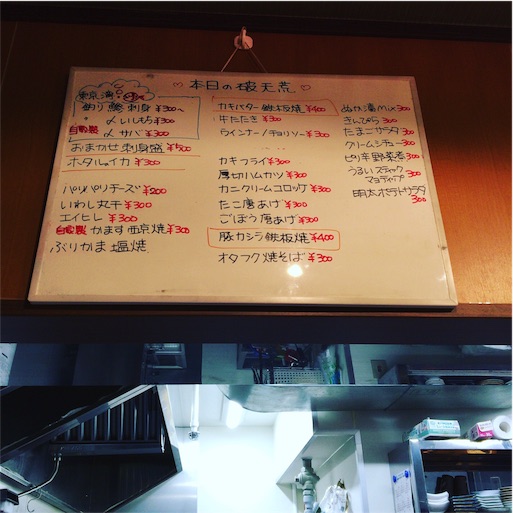 ♡ 本日の破天荒 ♡
東京湾
釣り鯵刺身 ¥300〜
〆いしもち ¥300
自家製 〆サバ ¥300
おまかせ刺身盛 ¥500
ホタルイカ ¥300
パリパリチーズ ¥200
いわし丸干 ¥300
エイヒレ ¥300
自家製 かます西京焼 ¥300
ぶりかま塩焼
カキバター鉄板焼 ¥400
牛たたき ¥300
ウインナー/チョリソー ¥300
カキフライ ¥300
厚切ハムカツ ¥300
カニクリームコロッケ ¥300
たこ唐あげ ¥300
ごぼう唐あげ ¥300
豚カシラ鉄板焼 ¥400
オタフク焼そば ¥300
ぬか漬mix 300
きんぴら 300
たまごサラダ 300
クリームシチュー 300
ピリ辛野菜煮 300
うるいスティック
マヨディップ 300
明太ポテトサラダ
300